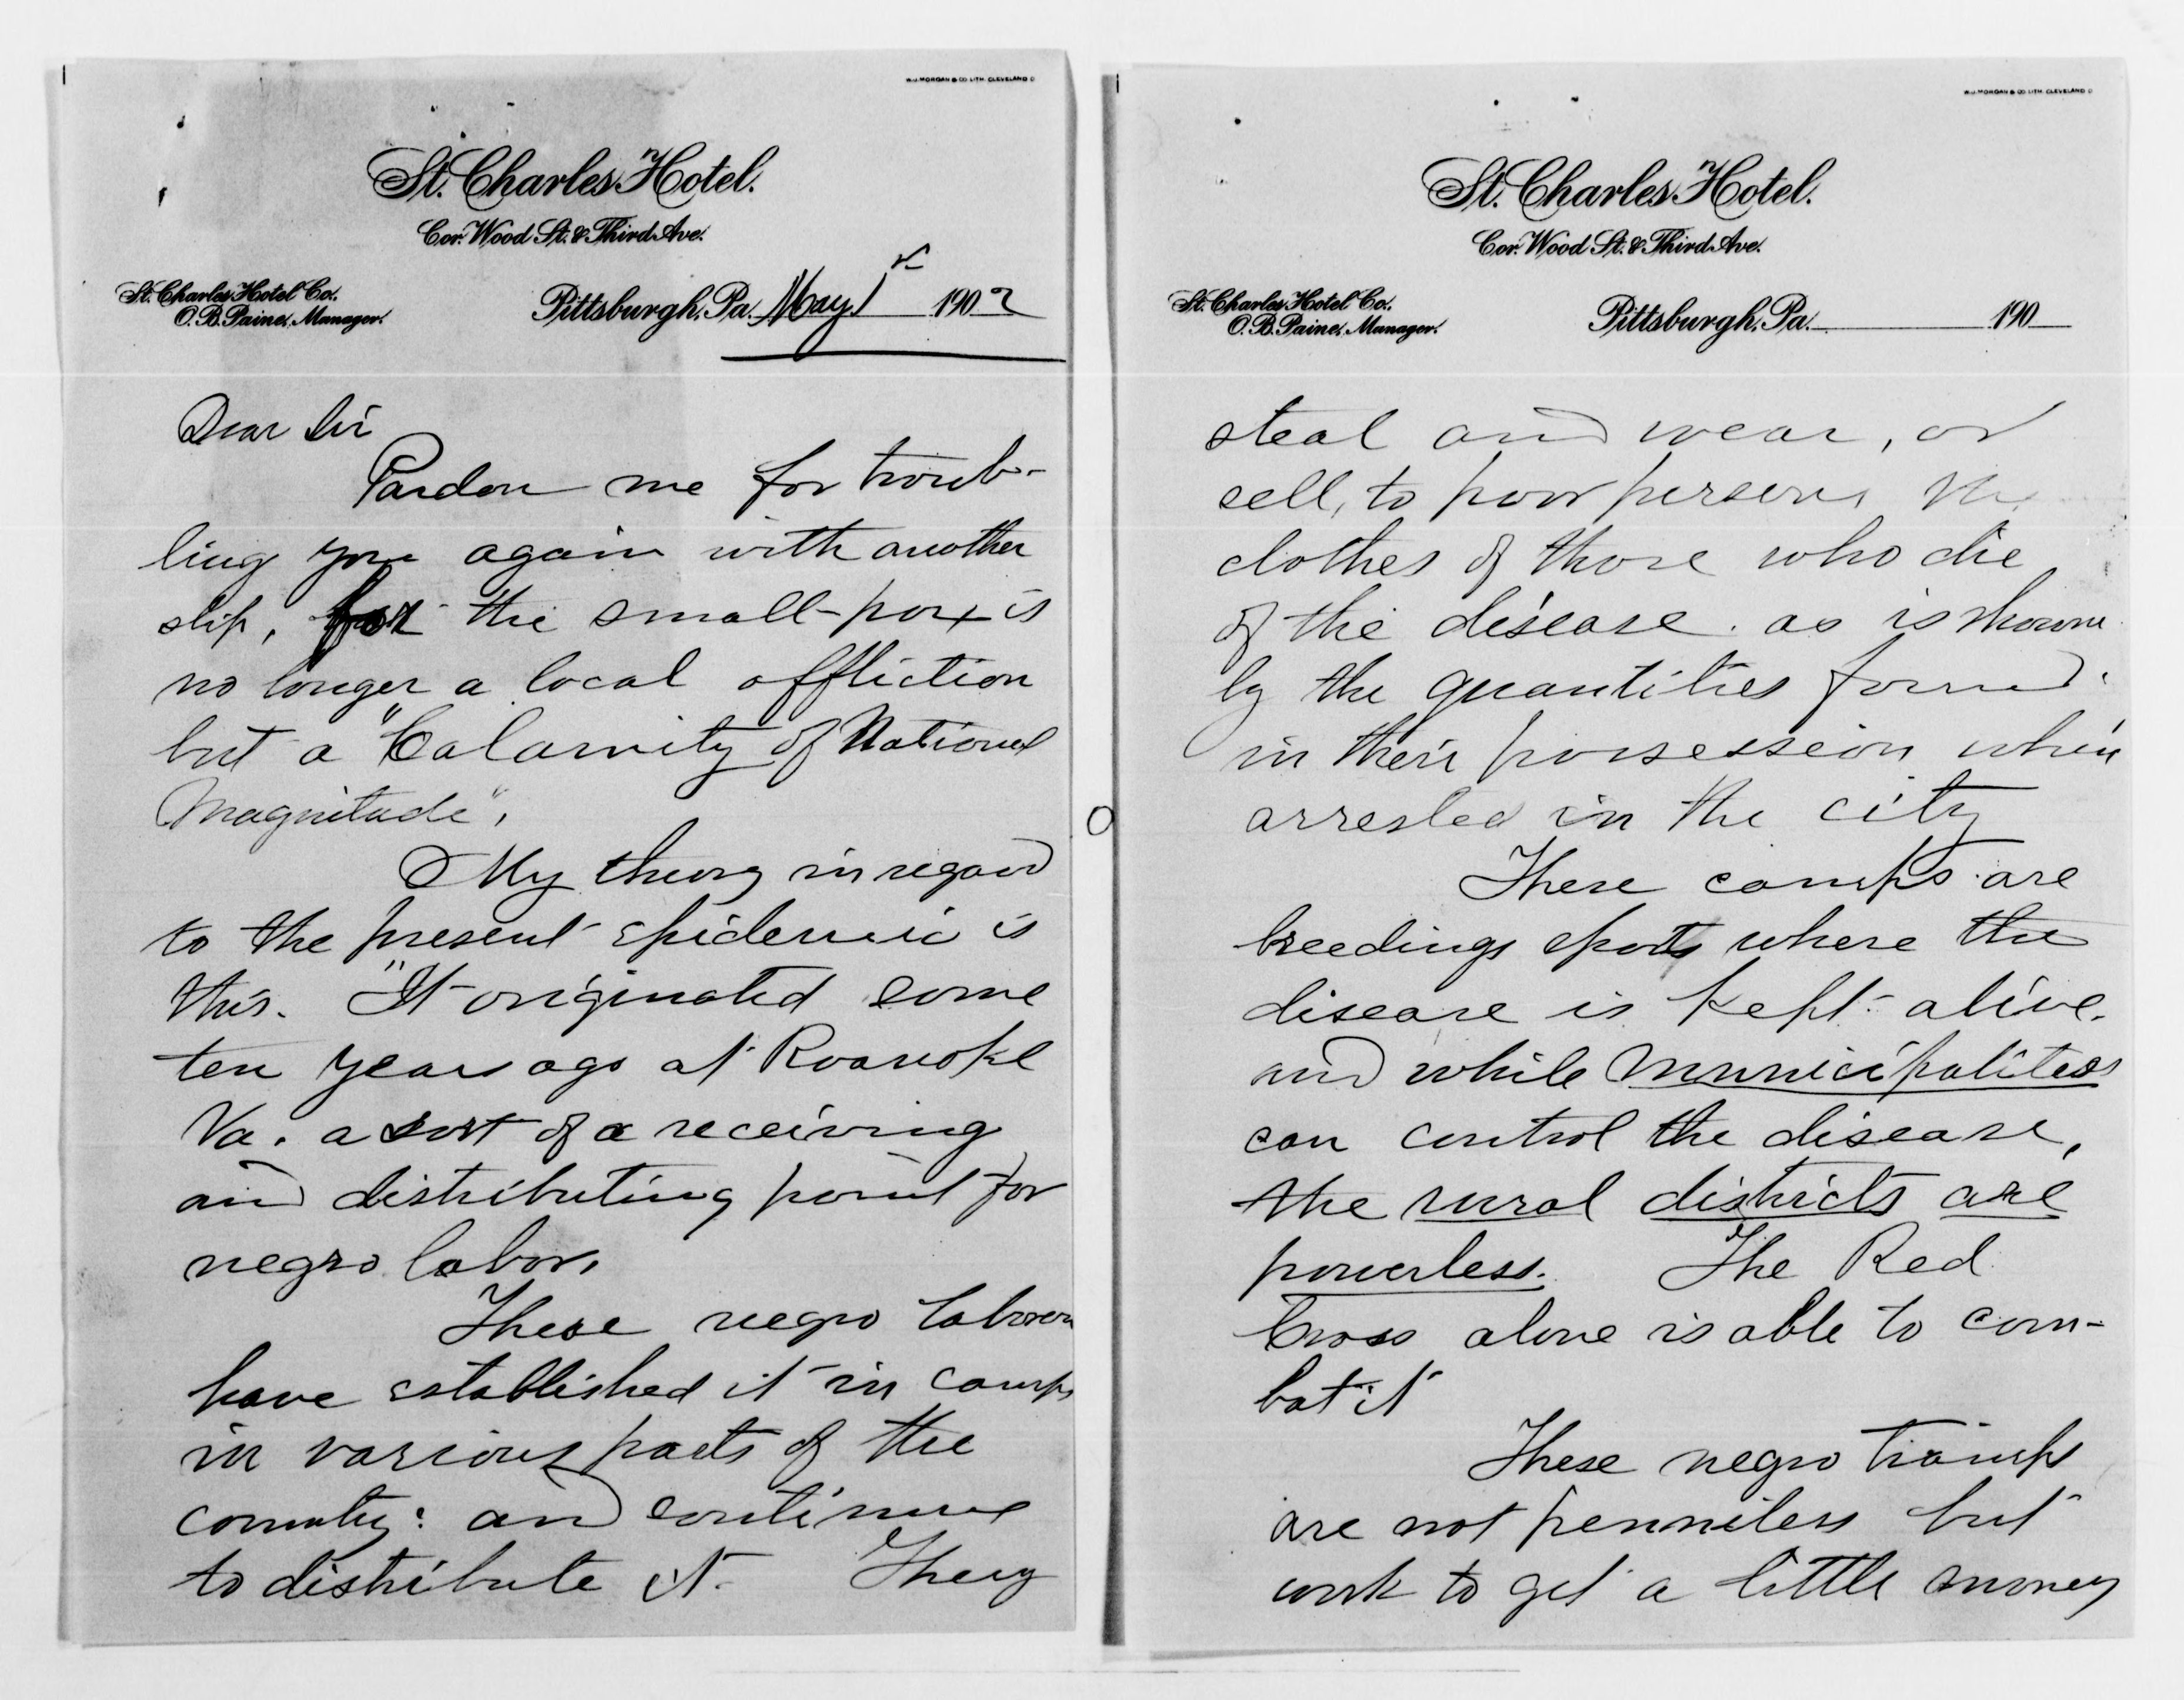 W.J. MORGAN & CO. LITH. CLEVELAND O
St. Charles Hotel.
Cor. Wood St. & Third Ave.
St. Charles Hotel Co.
O. B. Paine, Manager.
Pittsburgh, Pa. May 1st 1902
Dear Sir
Pardon me for troub-
ling you again with another
slip, for the small-pox is
no longer a local affliction
but a "Calamity of National
Magnitude".
My theory in regard
to the present epidemic is
this. "It originated some
ten years ago at Roanoke
Va. a sort of a receiving
and distributing point for
negro labor.
These negro laborers
have established it in camps
in various parts of the
country: and continue
to distribute it. They
W.J. MORGAN & CO. LITH. CLEVELAND O
St. Charles Hotel.
Cor. Wood St. & Third Ave.
St. Charles Hotel Co.
O. B. Paine, Manager.
Pittsburgh, Pa. 190
steal and wear, or
sell, to poor persons the
clothes of those who die
of the disease. as is shown
by the quantities found
in their possession when
arrested in the city
These camps are
breedings spots where the
disease is kept alive.
and while Municipalities
can control the disease,
the rural districts are
powerless. The Red
Cross alone is able to com-
bat it
These negro tramps
are not penniless but
work to get a little money